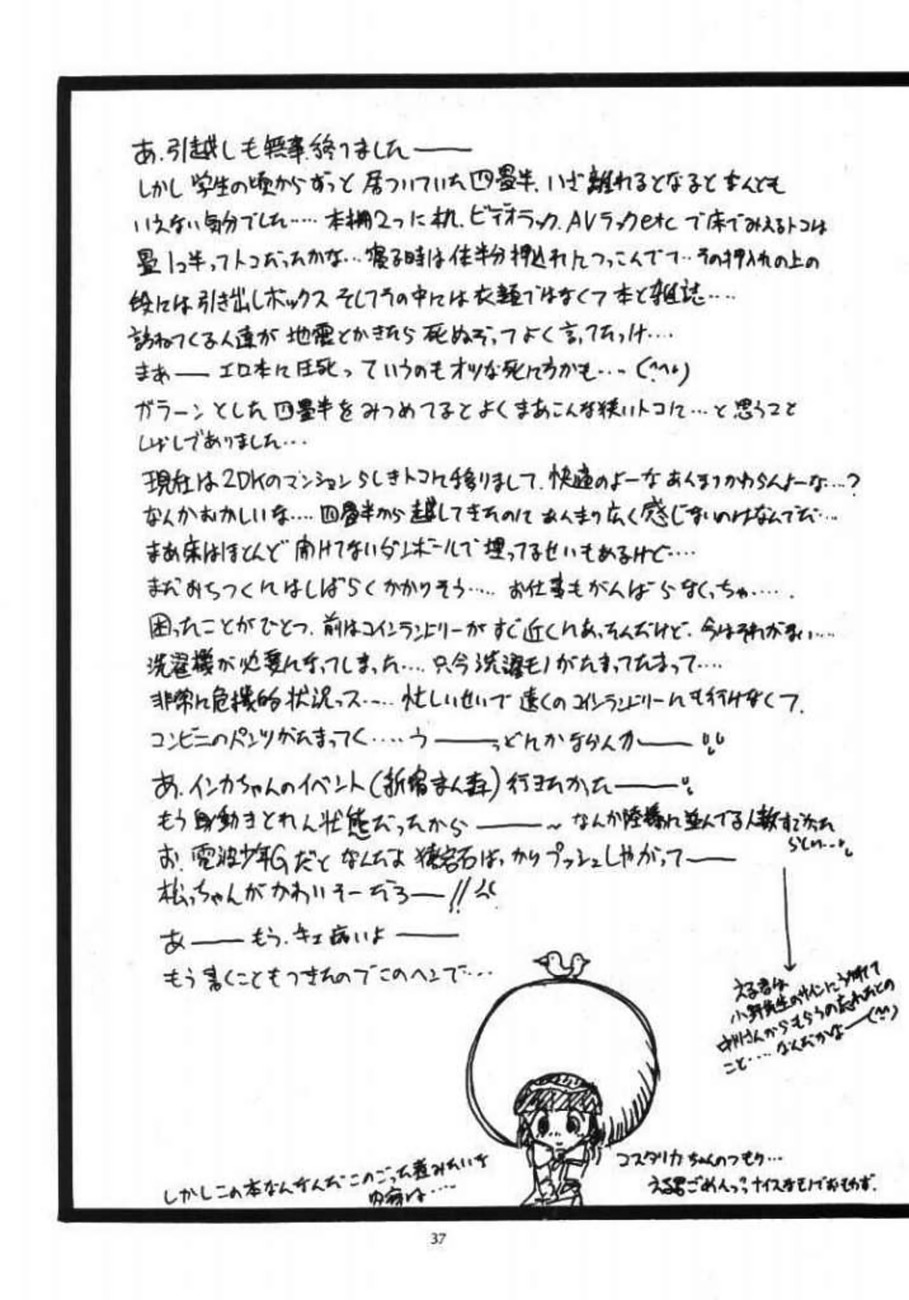 あ、引越しも無事、終りました——
しかし学生の頃からずっと居ついていた四畳半、いざ離れるとなるとなんとも
いえない気分でした……本棚2つに机、ビデオラック、AVラックetcで床でみえるトコは
畳1コ半ってトコだったかな…寝る時は体半分押込れにつっこんでて…その押入れの上の
段には引き出しボックスそしてその中には衣類ではなくて本と雑誌……
訪ねてくる人達が地震とかきたら死ぬぞってよく言ってたっけ……
まぁ——エロ本に圧死っていうのもオツな死に方かも…
ガラーンとした四畳半をみつめてるとよくまあこんな狭いトコに…と思うこと
しばしでありました…
現在は2DKのマンションらしきトコに移りまして、快適のよーなあんまりかわらんよーな…?
なんかおかしいな……四畳半から越してきたのにあんまり広く感じないのはなんでだ…
まあ床はほとんど開けてないダンボールで埋ってるせいもあるけど……
まだおちつくにはしばらくかかりそう……お仕事もがんばらなくっちゃ……
困ったことがひとつ、前はコインランドリーがすぐ近くにあったんだけど、今はそれがない……
洗濯機が必要になってしまった……只今洗濯モノがたまってたまって……
非常に危機的状況っス……忙しいせいで遠くのコインランドリーにも行けなくて、
コンビニのパンツがたまってく……う——っどんかならんか——
あ、インカちゃんのイベント(新宿まん森)行きたかった——
もう身動きとれん状態だったから——~なんか陸橋に並んでる人数すごかった
らしい…
お、電波少年Gだとなんだよ猿岩石ばっかりプッシュしやがって——
松っちゃんがかわいそーだろ—!!
あ——もう、キェ痛いよ——
もう書くこともつきたのでこのヘンで…
える君は
小野先生のサインにうかれて
さんからもらうの忘れたとの
こと……なんだかな—(^^)
コスタリカちゃんのつもり…
える君ごめんっっナイスなモノでおもわず、
しかしこの本なんなんだこのごった煮みたいな
内容は……
37